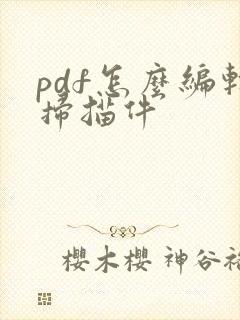 pdf怎麼編輯
掃描件
櫻木櫻 神谷裕